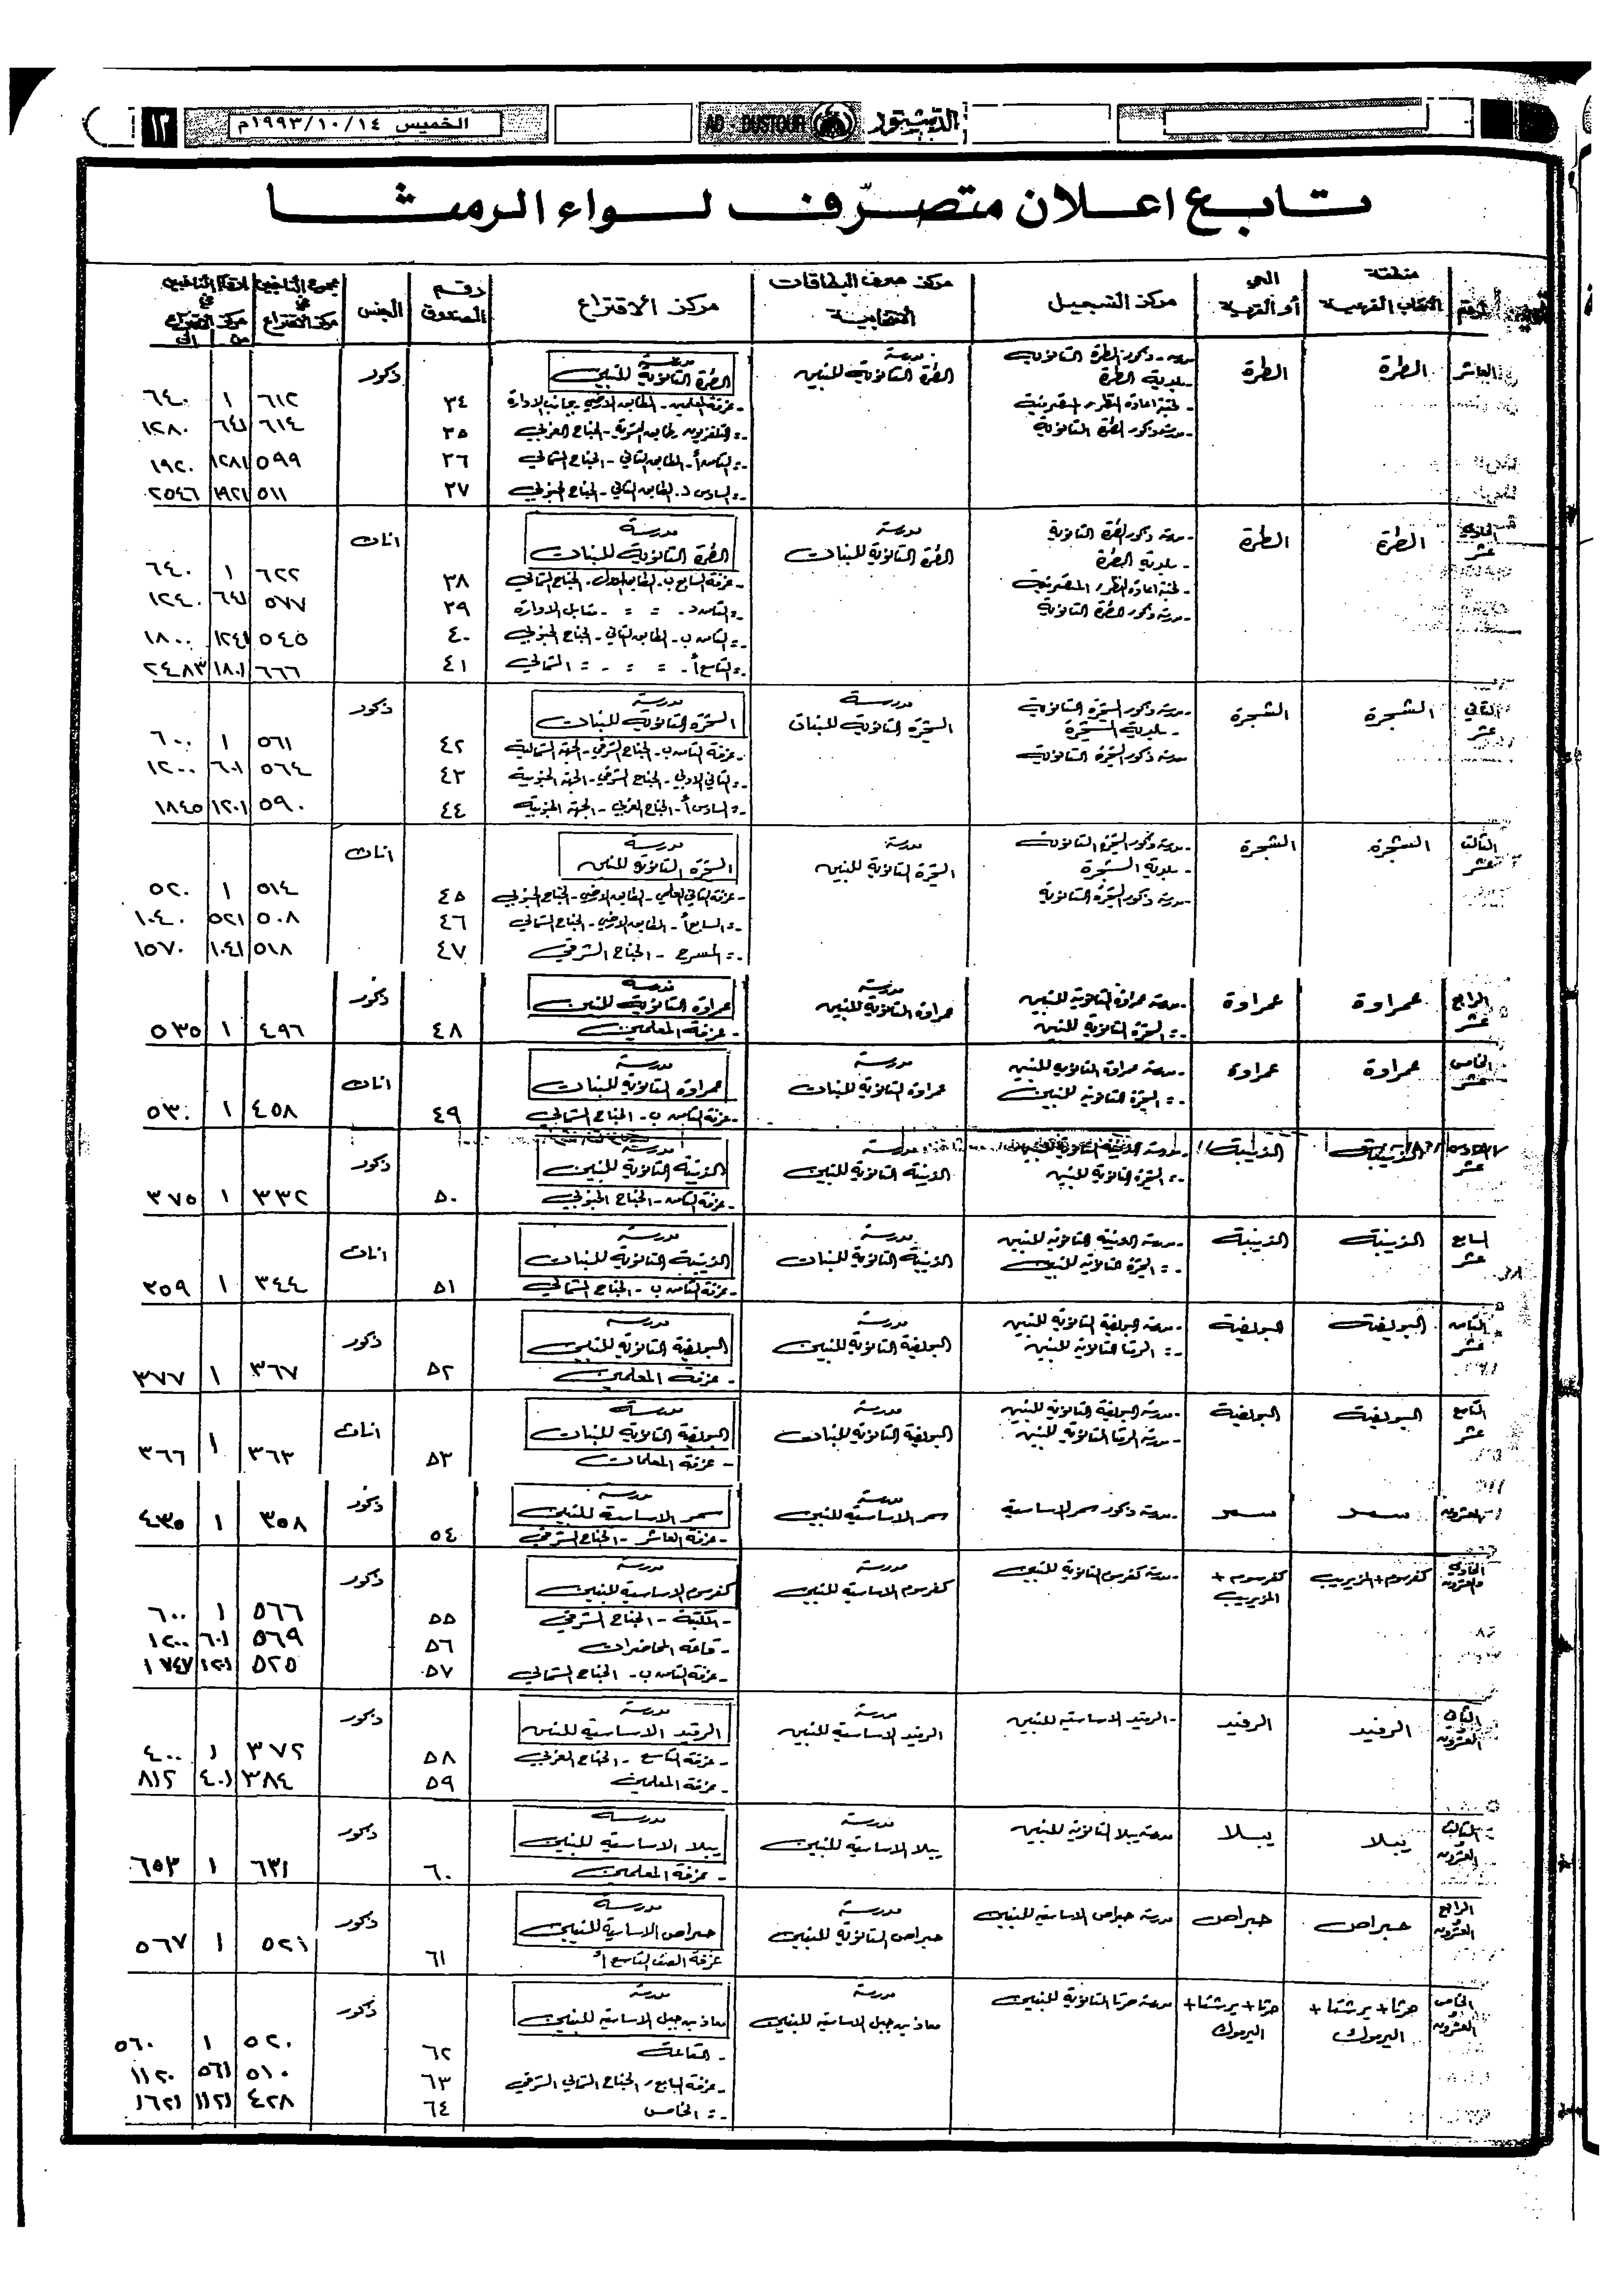 الدستور
AD - DUSTOUR
الخميس ١٩٩٣/١٠/١٤م
١٢
تابع اعلان متصرّف لواء الرمثا
الرقم
منطقة الانتخاب الفرعية
الحي أو القرية
مركز التسجيل
مركز صرف البطاقات الانتخابية
مركز الاقتراع
رقم الصندوق
الجنس
مجموع الناخبين في مركز الاقتراع
ارقام الناخبين في مركز الاقتراع
من الى
العاشر
الطرة
الطرة
مدرسة ذكور الطرة الثانوية
- بلدية الطرة
- مدرسة ذكور الطرة الثانوية
مدرسة الطرة الثانوية للبنين
مدرسة الطرة الثانوية للبنين
ذكور
- غرفة المعلمين - الطابق الارضي بجانب الادارة ٣٤ ٦١٢ ١ ٦٤٠
الجناح الغربي ٣٥ ٦١٤ ٦٤١ ١٢٨٠
- = الثامن أ - الطابق الثاني - الجناح الشمالي ٣٦ ٥٩٩ ١٢٨١ ١٩٢٠
- = السادس د - الطابق الثاني - الجناح الجنوبي ٣٧ ٥١١ ١٩٢١ ٢٥٤٦
الحادي عشر
الطرة
الطرة
- مدرسة ذكور الطرة الثانوية
- بلدية الطرة
- مدرسة ذكور الطرة الثانوية
مدرسة الطرة الثانوية للبنات
مدرسة الطرة الثانوية للبنات
اناث
- غرفة السابع ب - الطابق الاول - الجناح الشمالي ٣٨ ٦٢٢ ١ ٦٤٠
- = الثامن د - = = - مقابل الادارة ٣٩ ٥٧٧ ٦٤١ ١٢٤٠
- = الثامن ب - الطابق الثاني - الجناح الجنوبي ٤٠ ٥٤٥ ١٢٤١ ١٨٠٠
- = التاسع أ - = = - = الشمالي ٤١ ٦٦٦ ١٨٠١ ٢٤٨٣
الثاني عشر
الشجرة
الشجرة
- مدرسة ذكور الشجرة الثانوية
- بلدية الشجرة
مدرسة ذكور الشجرة الثانوية
مدرسة الشجرة الثانوية للبنات
مدرسة الشجرة الثانوية للبنات
ذكور
- غرفة الثامن ب - الجناح الشرقي - الجهة الشمالية ٤٢ ٥٦١ ١ ٦٠٠
- = الثاني الادبي - الجناح الشرقي - الجهة الجنوبية ٤٣ ٥٦٤ ٦٠١ ١٢٠٠
- = السادس أ - الجناح الغربي - الجهة الجنوبية ٤٤ ٥٩٠ ١٢٠١ ١٨٤٥
الثالث عشر
الشجرة
الشجرة
- مدرسة ذكور الشجرة الثانوية
- بلدية الشجرة
- مدرسة ذكور الشجرة الثانوية
مدرسة الشجرة الثانوية للبنين
مدرسة الشجرة الثانوية للبنين
اناث
- غرفة الثاني العلمي - الطابق الارضي - الجناح الجنوبي ٤٥ ٥١٤ ١ ٥٢٠
- = السابع أ - الطابق الارضي - الجناح الشمالي ٤٦ ٥٠٨ ٥٢١ ١٠٤٠
- = المسرح - الجناح الشرقي ٤٧ ٥١٨ ١٠٤١ ١٥٧٠
الرابع عشر
عمراوة
عمراوة
- مدرسة عمراوة الثانوية للبنين
- = الشجرة الثانوية للبنين
مدرسة عمراوة الثانوية للبنين
مدرسة عمراوة الثانوية للبنين
ذكور
- غرفة المعلمين ٤٨ ٤٩٦ ١ ٥٣٥
الخامس عشر
عمراوة
عمراوة
- مدرسة عمراوة الثانوية للبنين
- = الشجرة الثانوية للبنين
مدرسة عمراوة الثانوية للبنات
مدرسة عمراوة الثانوية للبنات
اناث
- غرفة الثامن ب - الجناح الشمالي ٤٩ ٤٥٨ ١ ٥٣٠
السادس عشر
الذنيبة
الذنيبة
- مدرسة الذنيبة الثانوية للبنين
- = الشجرة الثانوية للبنين
مدرسة الذنيبة الثانوية للبنين
مدرسة الذنيبة الثانوية للبنين
ذكور
- غرفة الثامن - الجناح الجنوبي ٥٠ ٣٣٢ ١ ٣٧٥
السابع عشر
الذنيبة
الذنيبة
- مدرسة الذنيبة الثانوية للبنين
- = الشجرة الثانوية للبنين
مدرسة الذنيبة الثانوية للبنات
مدرسة الذنيبة الثانوية للبنات
اناث
- غرفة الثامن ب - الجناح الشمالي ٥١ ٣٤٤ ١ ٣٥٩
الثامن عشر
البويضة
البويضة
- مدرسة البويضة الثانوية للبنين
- = الرمثا الثانوية للبنين
مدرسة البويضة الثانوية للبنين
مدرسة البويضة الثانوية للبنين
ذكور
- غرفة المعلمين ٥٢ ٣٦٧ ١ ٣٧٧
التاسع عشر
البويضة
البويضة
- مدرسة البويضة الثانوية للبنين
- مدرسة الرمثا الثانوية للبنين
مدرسة البويضة الثانوية للبنات
مدرسة البويضة الثانوية للبنات
اناث
- غرفة المعلمات ٥٣ ٣٦٣ ١ ٣٦٦
العشرون
سمر
سمر
مدرسة ذكور سمر الاساسية
مدرسة سمر الاساسية للبنين
مدرسة سمر الاساسية للبنين
ذكور
- غرفة العاشر - الجناح الشرقي ٥٤ ٣٥٨ ١ ٤٣٥
الحادي والعشرون
كفرسوم + المزيريب
كفرسوم + المزيريب
- مدرسة كفرسوم الثانوية للبنين
مدرسة كفرسوم الاساسية للبنين
مدرسة كفرسوم الاساسية للبنين
ذكور
- المكتبة - الجناح الشرقي ٥٥ ٥٦٦ ١ ٦٠٠
- قاعة المحاضرات ٥٦ ٥٦٩ ٦٠١ ١٢٠٠
- غرفة الثامن ب - الجناح الشمالي ٥٧ ٥٢٥ ١٢٠١ ١٧٤٧
الثاني العشرون
الرفيد
الرفيد
- الرفيد الاساسية للبنين
مدرسة الرفيد الاساسية للبنين
مدرسة الرفيد الاساسية للبنين
ذكور
- غرفة التاسع - الجناح الغربي ٥٨ ٣٧٢ ١ ٤٠٠
- غرفة المعلمين ٥٩ ٣٨٤ ٤٠١ ٨١٢
الثالث العشرون
يبلا
يبلا
مدرسة يبلا الثانوية للبنين
مدرسة يبلا الاساسية للبنين
مدرسة يبلا الاساسية للبنين
ذكور
- غرفة المعلمين ٦٠ ٦٣١ ١ ٦٥٣
الرابع العشرون
حبراص
حبراص
مدرسة حبراص الاساسية للبنين
مدرسة حبراص الثانوية للبنين
مدرسة حبراص الاساسية للبنين
ذكور
غرفة الصف التاسع أ ٦١ ٥٢١ ١ ٥٦٧
الخامس العشرون
حرثا + يرشتا + اليرموك
حرثا + يرشتا + اليرموك
مدرسة حرثا الثانوية للبنين
مدرسة معاذ بن جبل الاساسية للبنين
مدرسة معاذ بن جبل الاساسية للبنين
ذكور
- القاعة ٦٢ ٥٢٠ ١ ٥٦٠
- غرفة السابع / الجناح الشمالي الشرقي ٦٣ ٥١٠ ٥٦١ ١١٢٠
- = الخامس ٦٤ ٤٢٨ ١١٢١ ١٦٢١